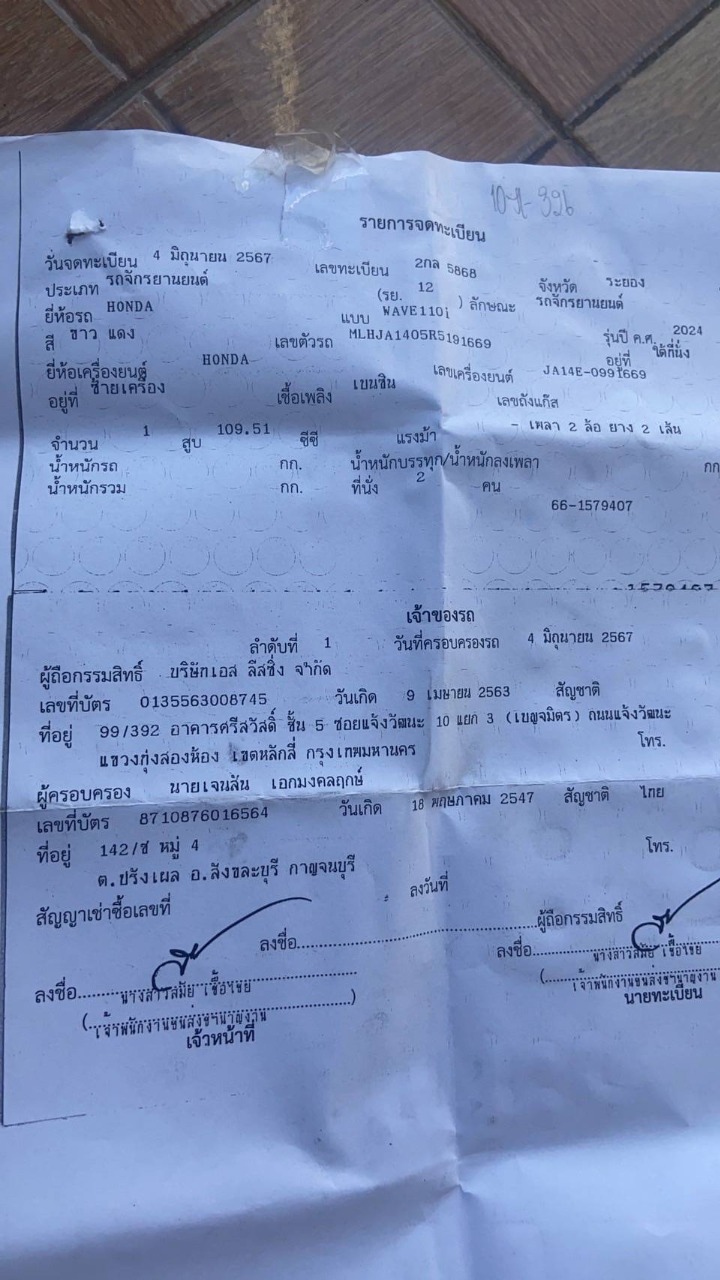 10-ป-326
รายการจดทะเบียน
วันจดทะเบียน 4 มิถุนายน 2567 เลขทะเบียน 2กล 5868 จังหวัด ระยอง
ประเภท รถจักรยานยนต์ (รย. 12 ) ลักษณะ รถจักรยานยนต์
ยี่ห้อรถ HONDA แบบ WAVE110i รุ่นปี ค.ศ. 2024
สี ขาว แดง เลขตัวรถ MLHJA1405R5191669 อยู่ที่ ใต้ที่นั่ง
ยี่ห้อเครื่องยนต์ HONDA เลขเครื่องยนต์ JA14E-0991669
อยู่ที่ ซ้ายเครื่อง เชื้อเพลิง เบนซิน เลขถังแก๊ส
จำนวน 1 สูบ 109.51 ซีซี แรงม้า - เพลา 2 ล้อ ยาง 2 เส้น
น้ำหนักรถ กก. น้ำหนักบรรทุก/น้ำหนักลงเพลา กก
น้ำหนักรวม กก. ที่นั่ง 2 คน
66-1579407
เจ้าของรถ
ลำดับที่ 1 วันที่ครอบครองรถ 4 มิถุนายน 2567
ผู้ถือกรรมสิทธิ์ บริษัทเอส ลีสซิ่ง จำกัด
เลขที่บัตร 0135563008745 วันเกิด 9 เมษายน 2563 สัญชาติ
ที่อยู่ 99/392 อาคารศรีสวัสดิ์ ชั้น 5 ซอยแจ้งวัฒนะ 10 แยก 3 (เบญจมิตร) ถนนแจ้งวัฒนะ
แขวงทุ่งสองห้อง เขตหลักสี่ กรุงเทพมหานคร โทร.
ผู้ครอบครอง นายเจนสัน เอกมงคลฤกษ์
เลขที่บัตร 8710876016564 วันเกิด 18 พฤษภาคม 2547 สัญชาติ ไทย
ที่อยู่ 142/ซ หมู่ 4 โทร.
ต.ปรังเผล อ.สังขละบุรี กาญจนบุรี
สัญญาเช่าซื้อเลขที่ ลงวันที่
ลงชื่อ ผู้ถือกรรมสิทธิ์
ลงชื่อ นางสาวสมัย เชื้อไชย ลงชื่อ นางสาวสมัย เชื้อไชย
(เจ้าพนักงานขนส่งชำนาญงาน) (เจ้าพนักงานขนส่งชำนาญงาน
เจ้าหน้าที่ นายทะเบียน